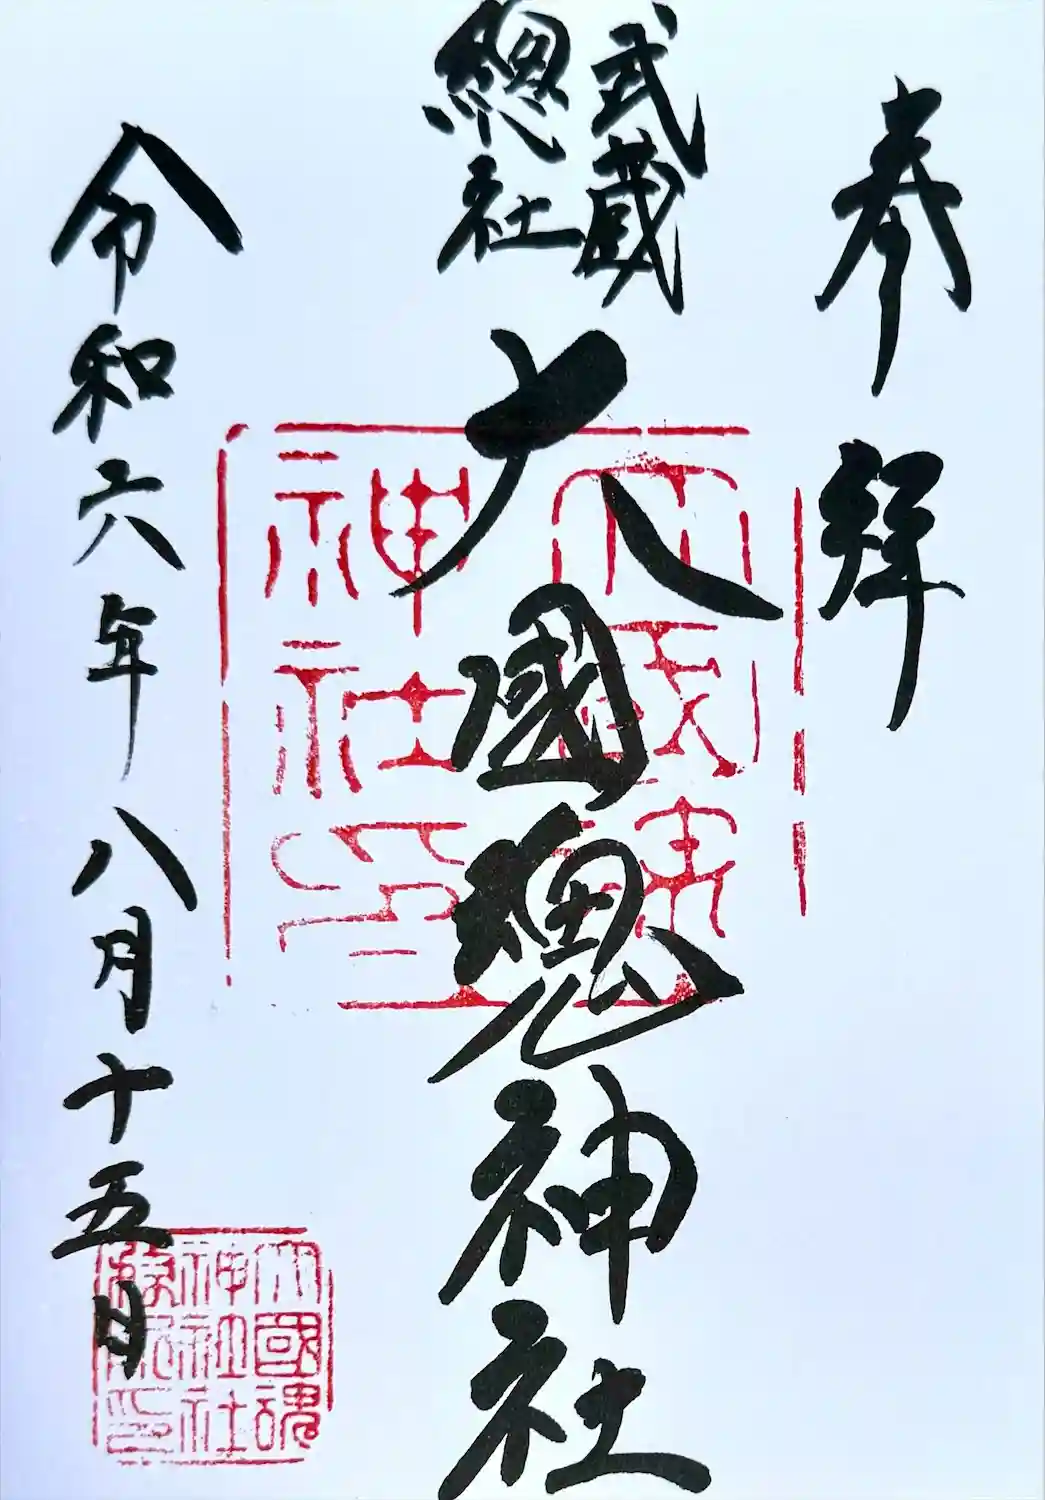 奉拝
武蔵
總社
大國魂神社
令和六年八月十五日
大國魂
神社印
大國魂
神社社
務所印